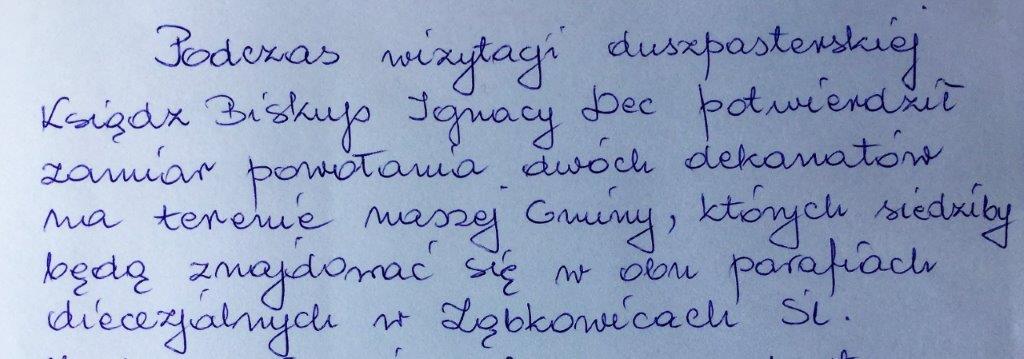 Podczas wizytacji duszpasterskiej
Ksiądz Biskup Ignacy Dec potwierdził
zamiar powołania dwóch dekanatów
na terenie naszej Gminy, których siedziby
będą znajdować się w obu parafiach
diecezjalnych w Ząbkowicach Śl.